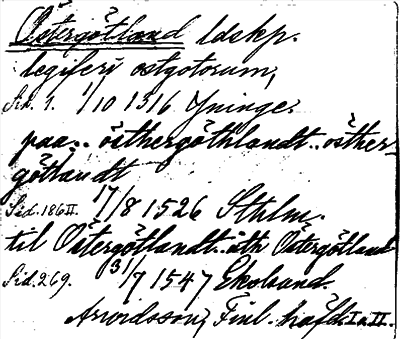 Östergötland ldskp.
legiferi ostgotorum,
Sid. 1. 1/10 1316 Yninge.
paa.. östhergöthlandt.. östher-
götlandt
Sid. 186 II. 17/8 1526 Sthlm.
til Östergötlandt.. uth Östergötland
Sid. 269. 31/7 1547 Ekolsund.
Arvidsson, Finl. häfd. I o. II.